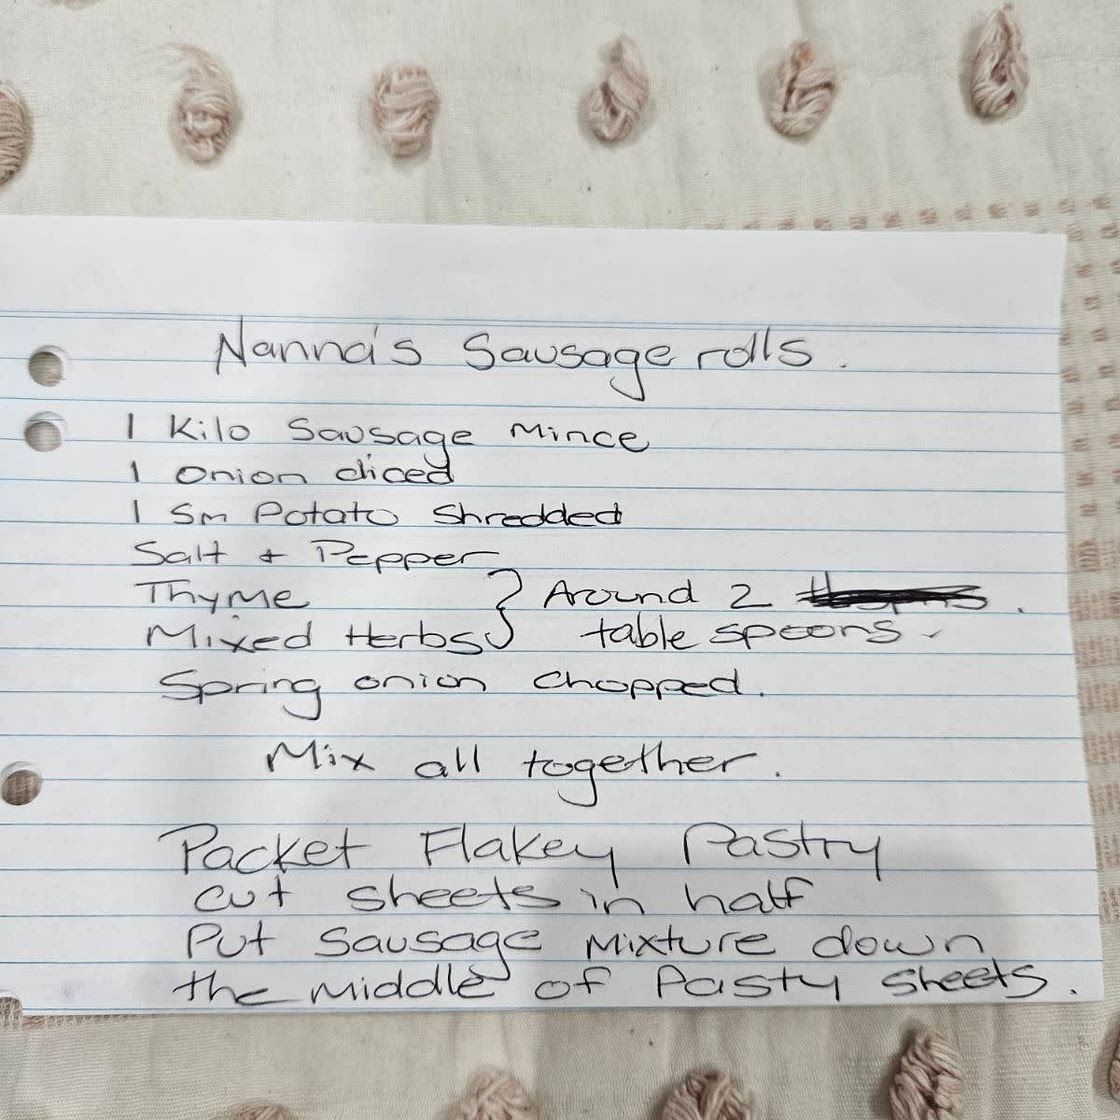 Nanna's Sausage rolls.
1 Kilo Sausage Mince
1 onion diced
1 Sm Potato Shredded
Salt + Pepper
Thyme } Around 2 .
Mixed Herbs table spoons
Spring onion chopped.
Mix all together.
Packet Flakey Pastry
cut sheets in half
Put Sausage Mixture down
the middle of Pasty sheets.